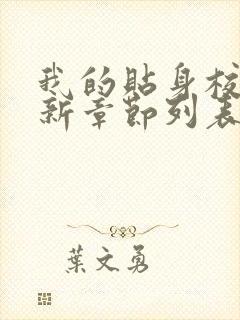 我的貼身校
新章節列表
葉文勇